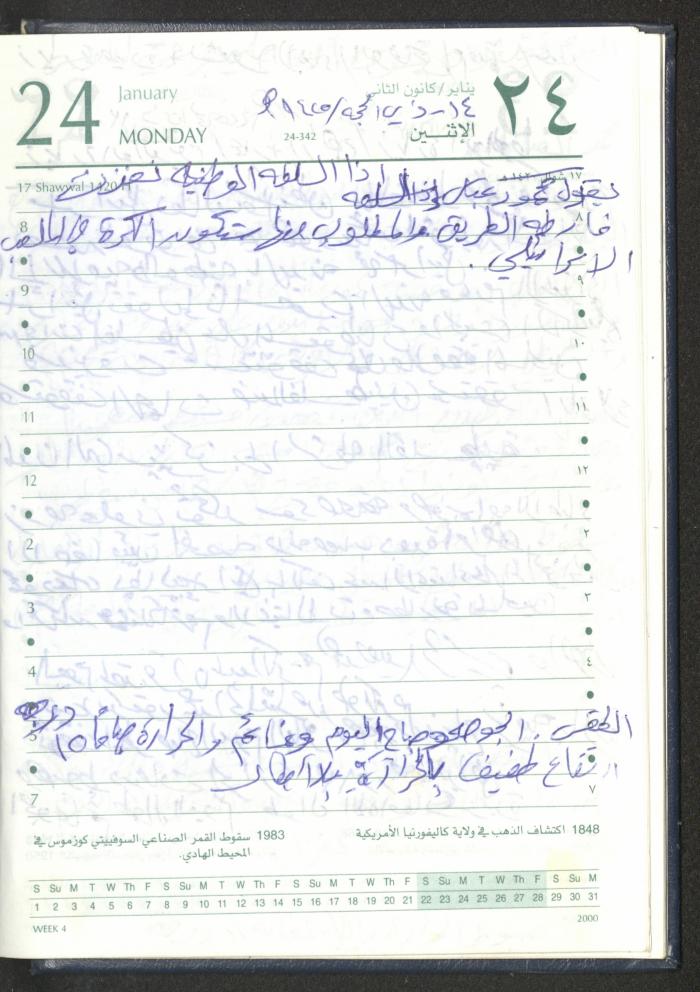 24 January MONDAY
يناير/كانون الثاني ٢٤
١٤ـ ذي الحجه/١٤٢٥
24-342 الإثنين
17 Shawwal 1420 H ١٧ شوال ١٤٢٠هـ
يقول محمود عباس اذا السلطه الوطنية نفذت
خارطه الطريق والمطلوب منها ستكون الكرة في الملعب
الاسرائيلي .
8 ٨
9 ٩
10 ١٠
11 ١١
12 ١٢
2 ٢
3 ٣
4 ٤
الطقس . الجو صحو صباح اليوم وغائم والحرارة صباحًا ١٥ درجه
ارتفاع طفيف بالحرارة بلا أمطار
7 ٧
1848 اكتشاف الذهب في ولاية كاليفورنيا الأمريكية
1983 سقوط القمر الصناعي السوفييتي كوزموس في
المحيط الهادي.
S Su M T W Th F S Su M T W Th F S Su M T W Th F S Su M T W Th F S Su M
1 2 3 4 5 6 7 8 9 10 11 12 13 14 15 16 17 18 19 20 21 22 23 24 25 26 27 28 29 30 31
WEEK 4 2000